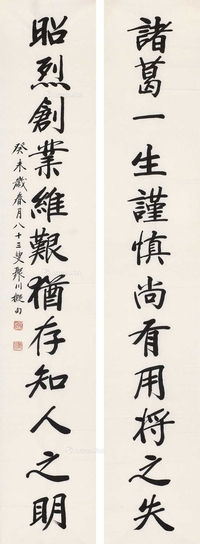 諸葛一生謹慎尚有用將之失
昭烈創業維艱猶存知人之明
癸未歲春月八十三叟聚川擬句